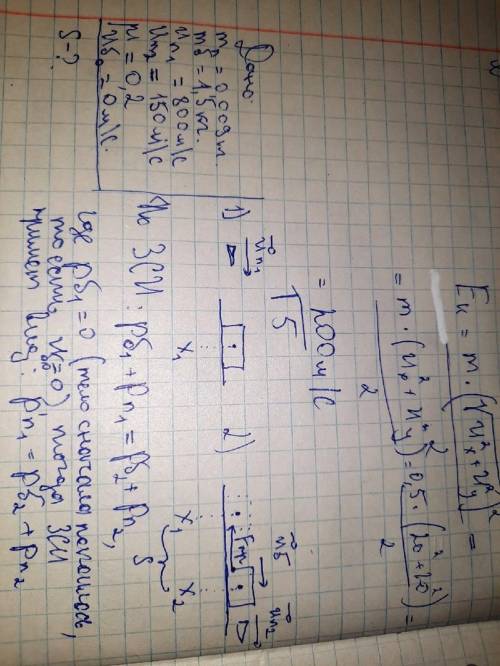 Eк = m · (√u²x + u²y)² =
2
= m · (u²₀ + u²y) = 0,5 · (20² + 20²) =
2
2
= 200 м/с
15
Дано:
m₁ = 0,009 т.
mб = 1,5 кг.
uп₁ = 800 м/с
uп₂ = 150 м/с
μ = 0,2
uб₀ = 0 м/с.
S - ?
1) uп₁
x₁
2) uб uп₂
Fтр
x₁ x₂
S
По ЗСИ: pб₁ + pп₁ = pб₂ + pп₂,
где pб₁ = 0 (тело сначала покоилось,
то есть uб₀ = 0), тогда ЗСИ
примет вид: pп₁ = pб₂ + pп₂